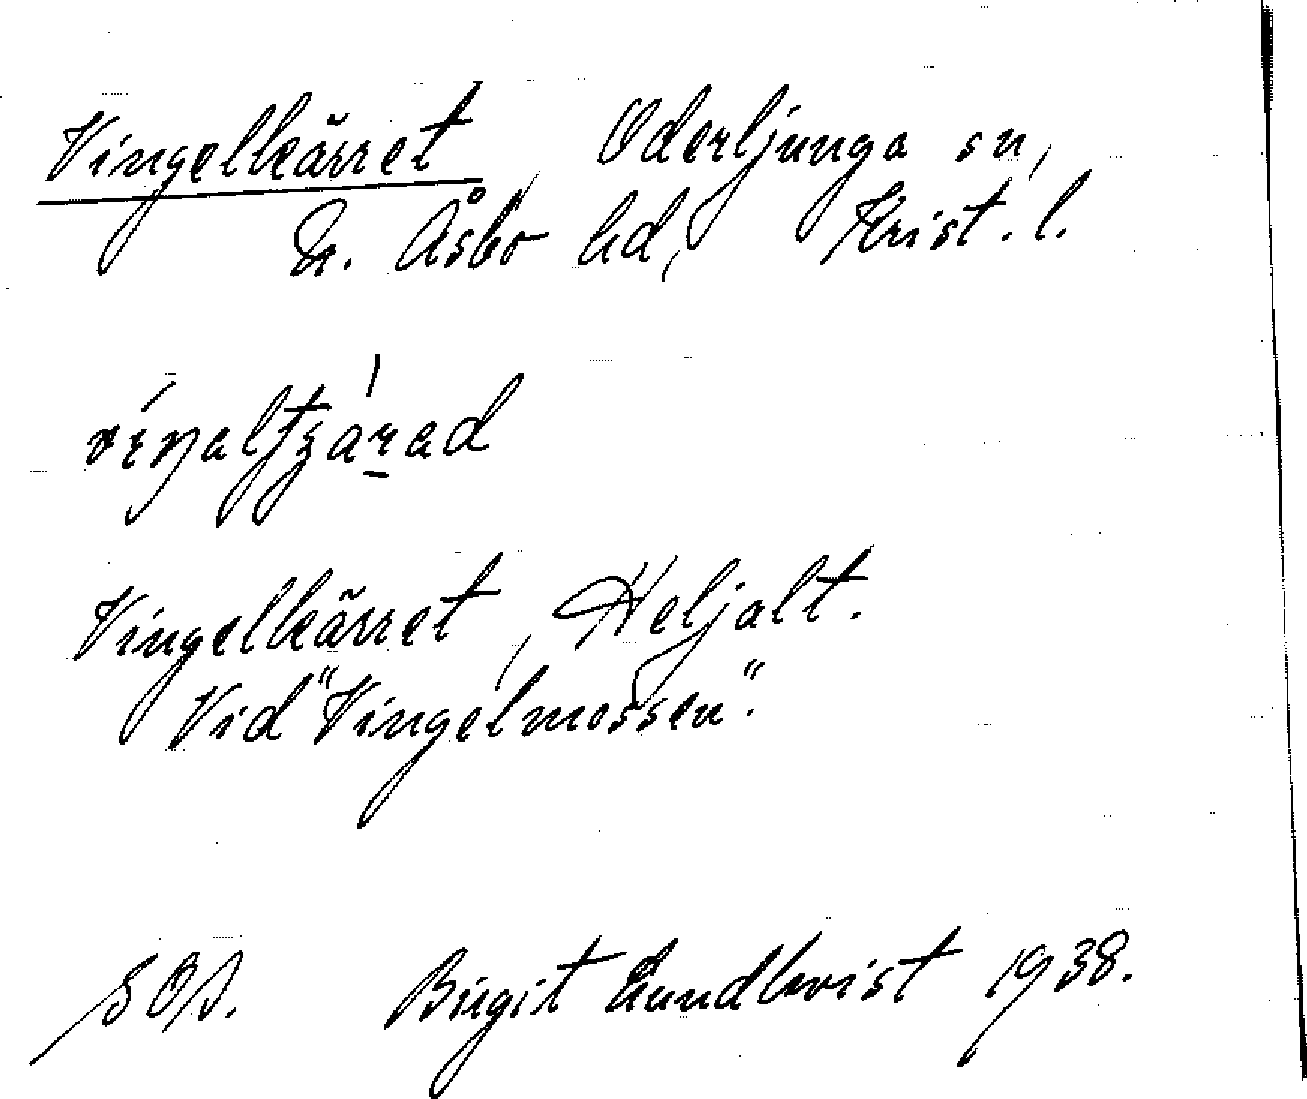 Vingelkärret, Oderljunga sn,
N. Åsbo hd, Krist. l.
Vingelkärret, Äeljalt.
Vid "Vingelmossen".
SOA. Birgit Lundkvist 1938.